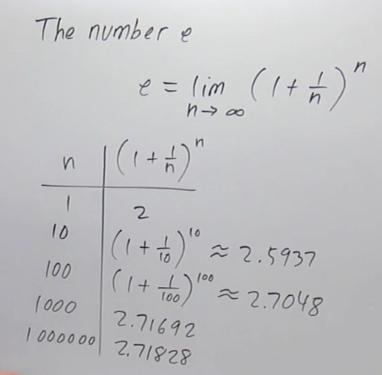 The number e
e = lim n→∞ (1 + 1/n)^n
n | (1 + 1/n)^n
1 | 2
10 | (1 + 1/10)^10 ≈ 2.5937
100 | (1 + 1/100)^100 ≈ 2.7048
1000 | 2.71692
1000000 | 2.71828